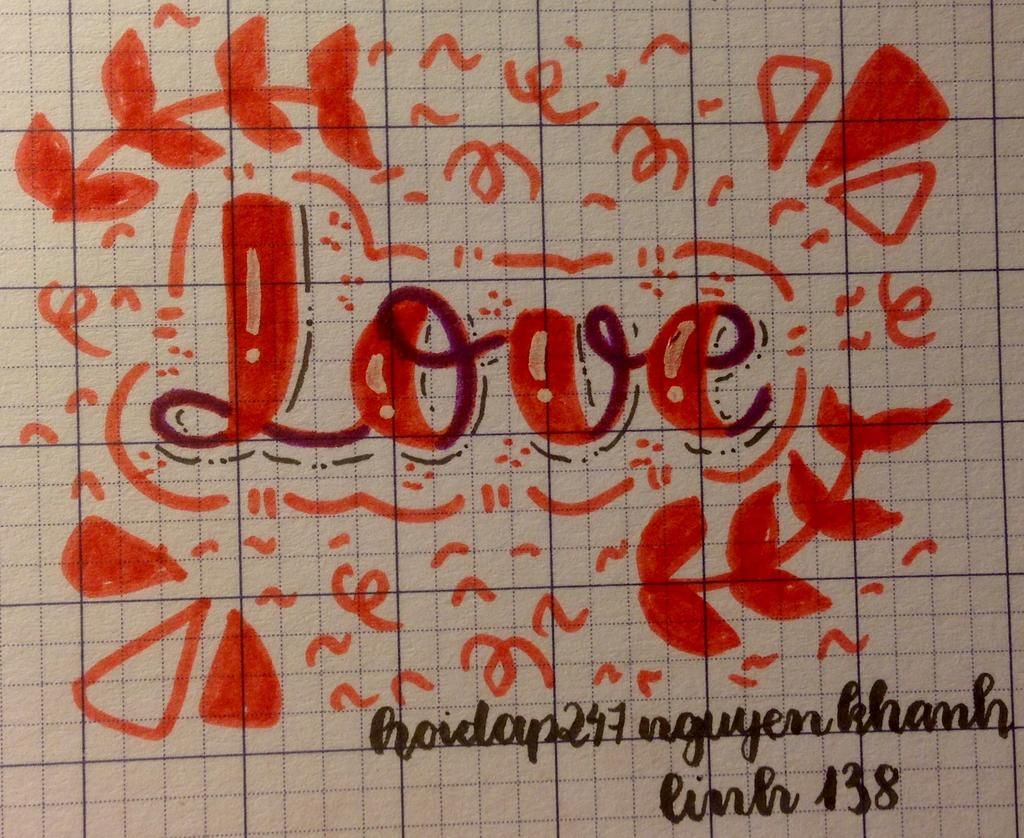 Love
hoidap247 nguyen khanh
linh 138